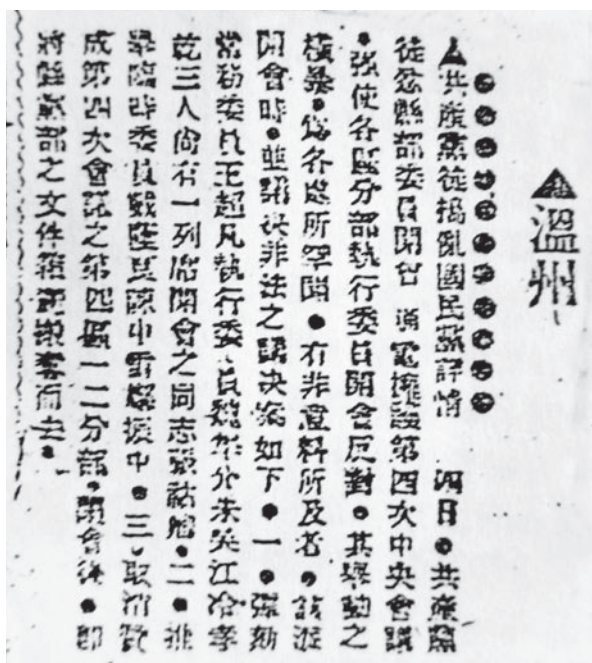 ▲溫州
▲共產黨徒搗亂國民黨詳情 四日●共產黨
徒忿縣部委員開會 通電擁護第四次中央會議
●強使各區分部執行委員開會反對●其舉動之
橫暴●為各處所罕聞●有非意料所及者●該派
開會時●並議決非法之議決案如下●一●彈劾
常務委員王超凡執行委員魏華分朱笑江冷孝
乾三人尚有一列席開會之同志張●二●推
舉臨時委員陳中雷蔡振中●三●取消贊
成第四次會議之第四區一二分部●開會後●即
將縣黨部之文件奪而去●